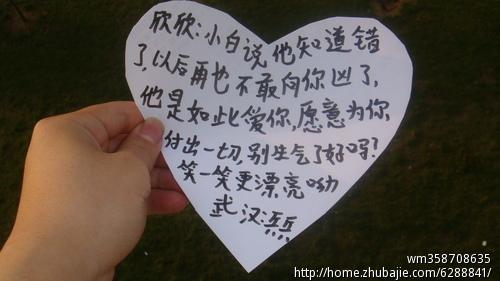 欣欣:小白说他知道错
了,以后再也不敢向你凶了,
他是如此爱你,愿意为你
付出一切,别生气了好吗?
笑一笑更漂亮呦
武汉:
wm358708635
http://home.zhubajie.com/6288841/